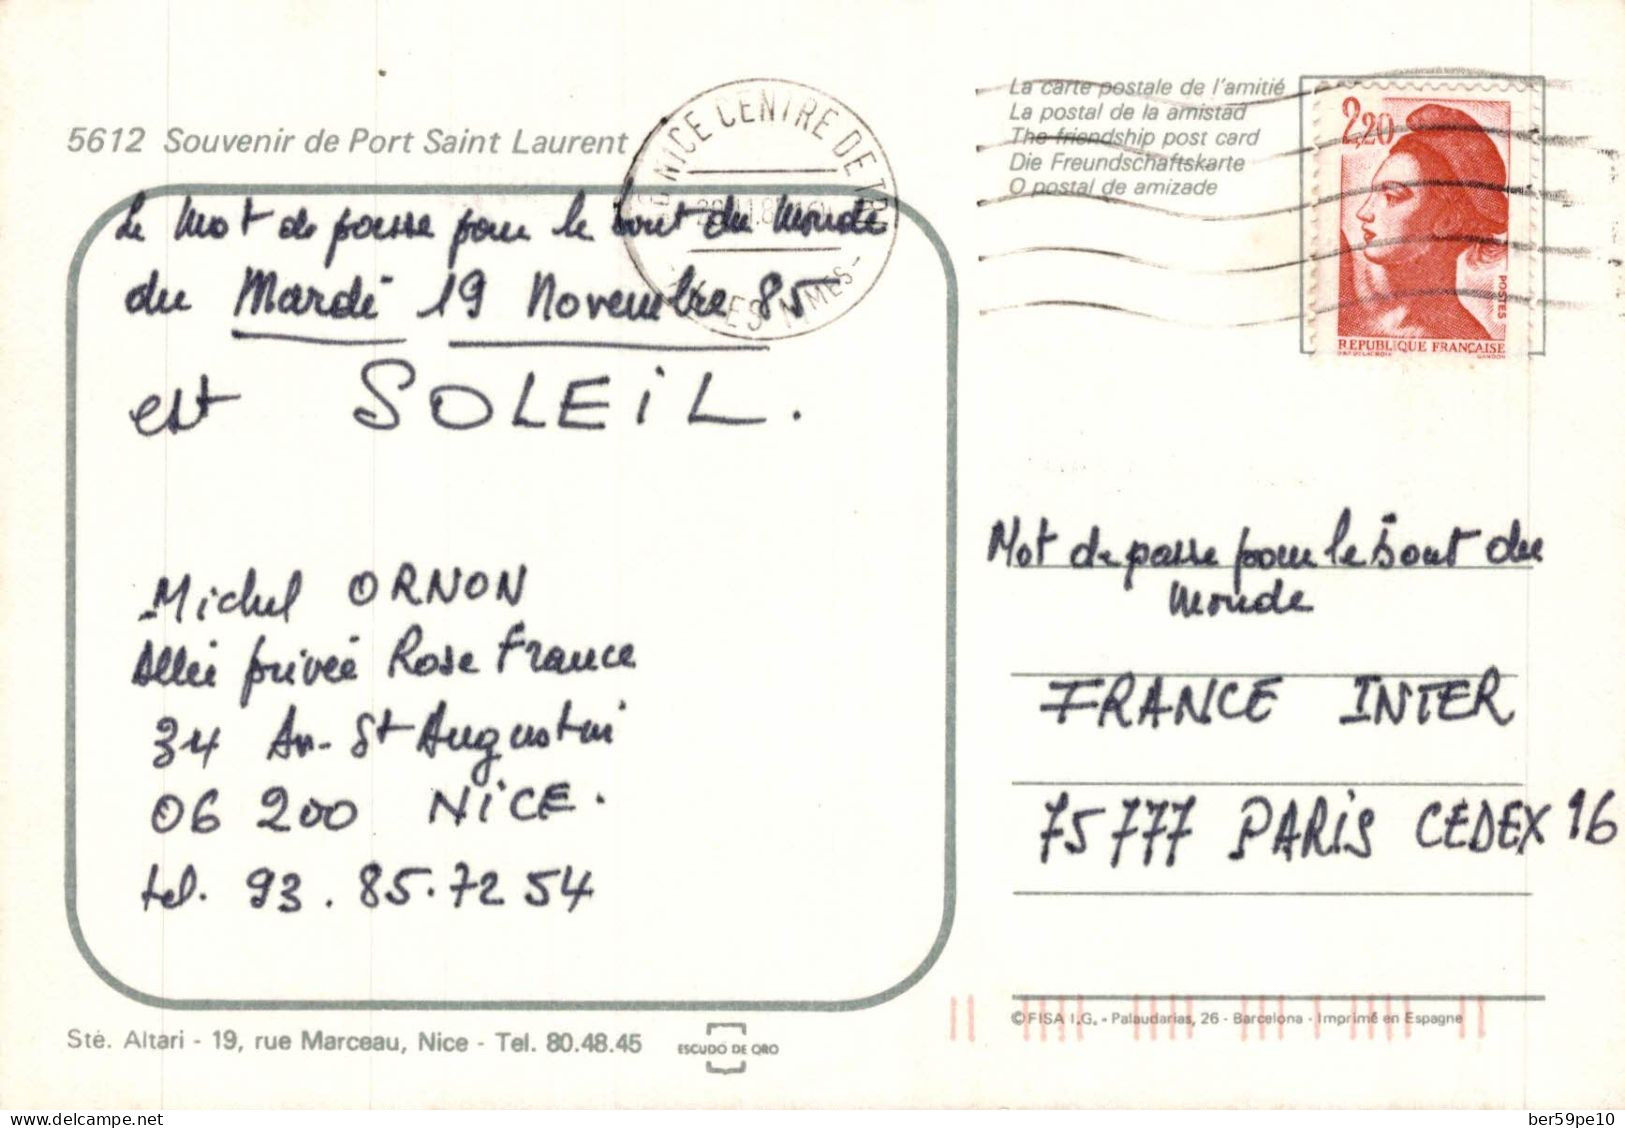 5612 Souvenir de Port Saint Laurent
Le Mot de passe pour le bout du Monde
du Mardi 19 Novembre 85
est SOLEIL.
Michel ORNON
Allée privée Rose France
34 Av. St Augustin
06 200 NICE.
tel. 93. 85. 72 54
Sté. Altari - 19, rue Marceau, Nice - Tel. 80.48.45
ESCUDO DE ORO
NICE CENTRE DE TRI
ALPES MMES
La carte postale de l'amitié
La postal de la amistad
The friendship post card
Die Freundschaftskarte
O postal de amizade
2,20
POSTES
REPUBLIQUE FRANÇAISE
GANDON
Mot de passe pour le bout du
Monde
FRANCE INTER
75777 PARIS CEDEX 16
© FISA I.G. - Palaudarias, 26 - Barcelona - Imprimé en Espagne
delcampe.net
ber59pe10